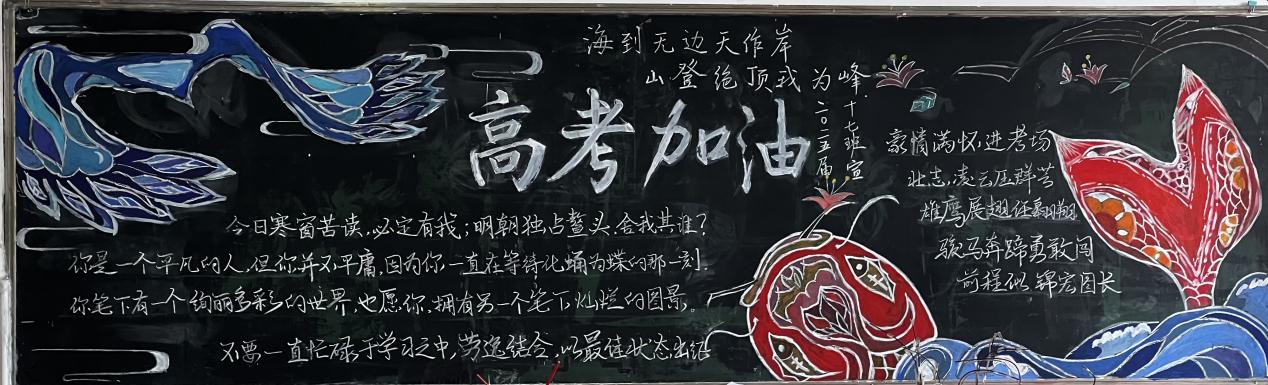 海到无边天作岸
山登绝顶我为峰
高考加油
二〇二五届
十七班 宣
今日寒窗苦读,必定有我;明朝独占鳌头,舍我其谁?
你是一个平凡的人,但你并不平庸,因为你一直在等待化蛹为蝶的那一刻.
你笔下有一个绚丽多彩的世界,也愿你,拥有另一个笔下灿烂的图景。
不要一直忙碌于学习之中,劳逸结合,以最佳状态出征
豪情满怀进考场
壮志凌云压群芳
雄鹰展翅任翱翔
骏马奔蹄勇敢闯
前程似锦宏图长